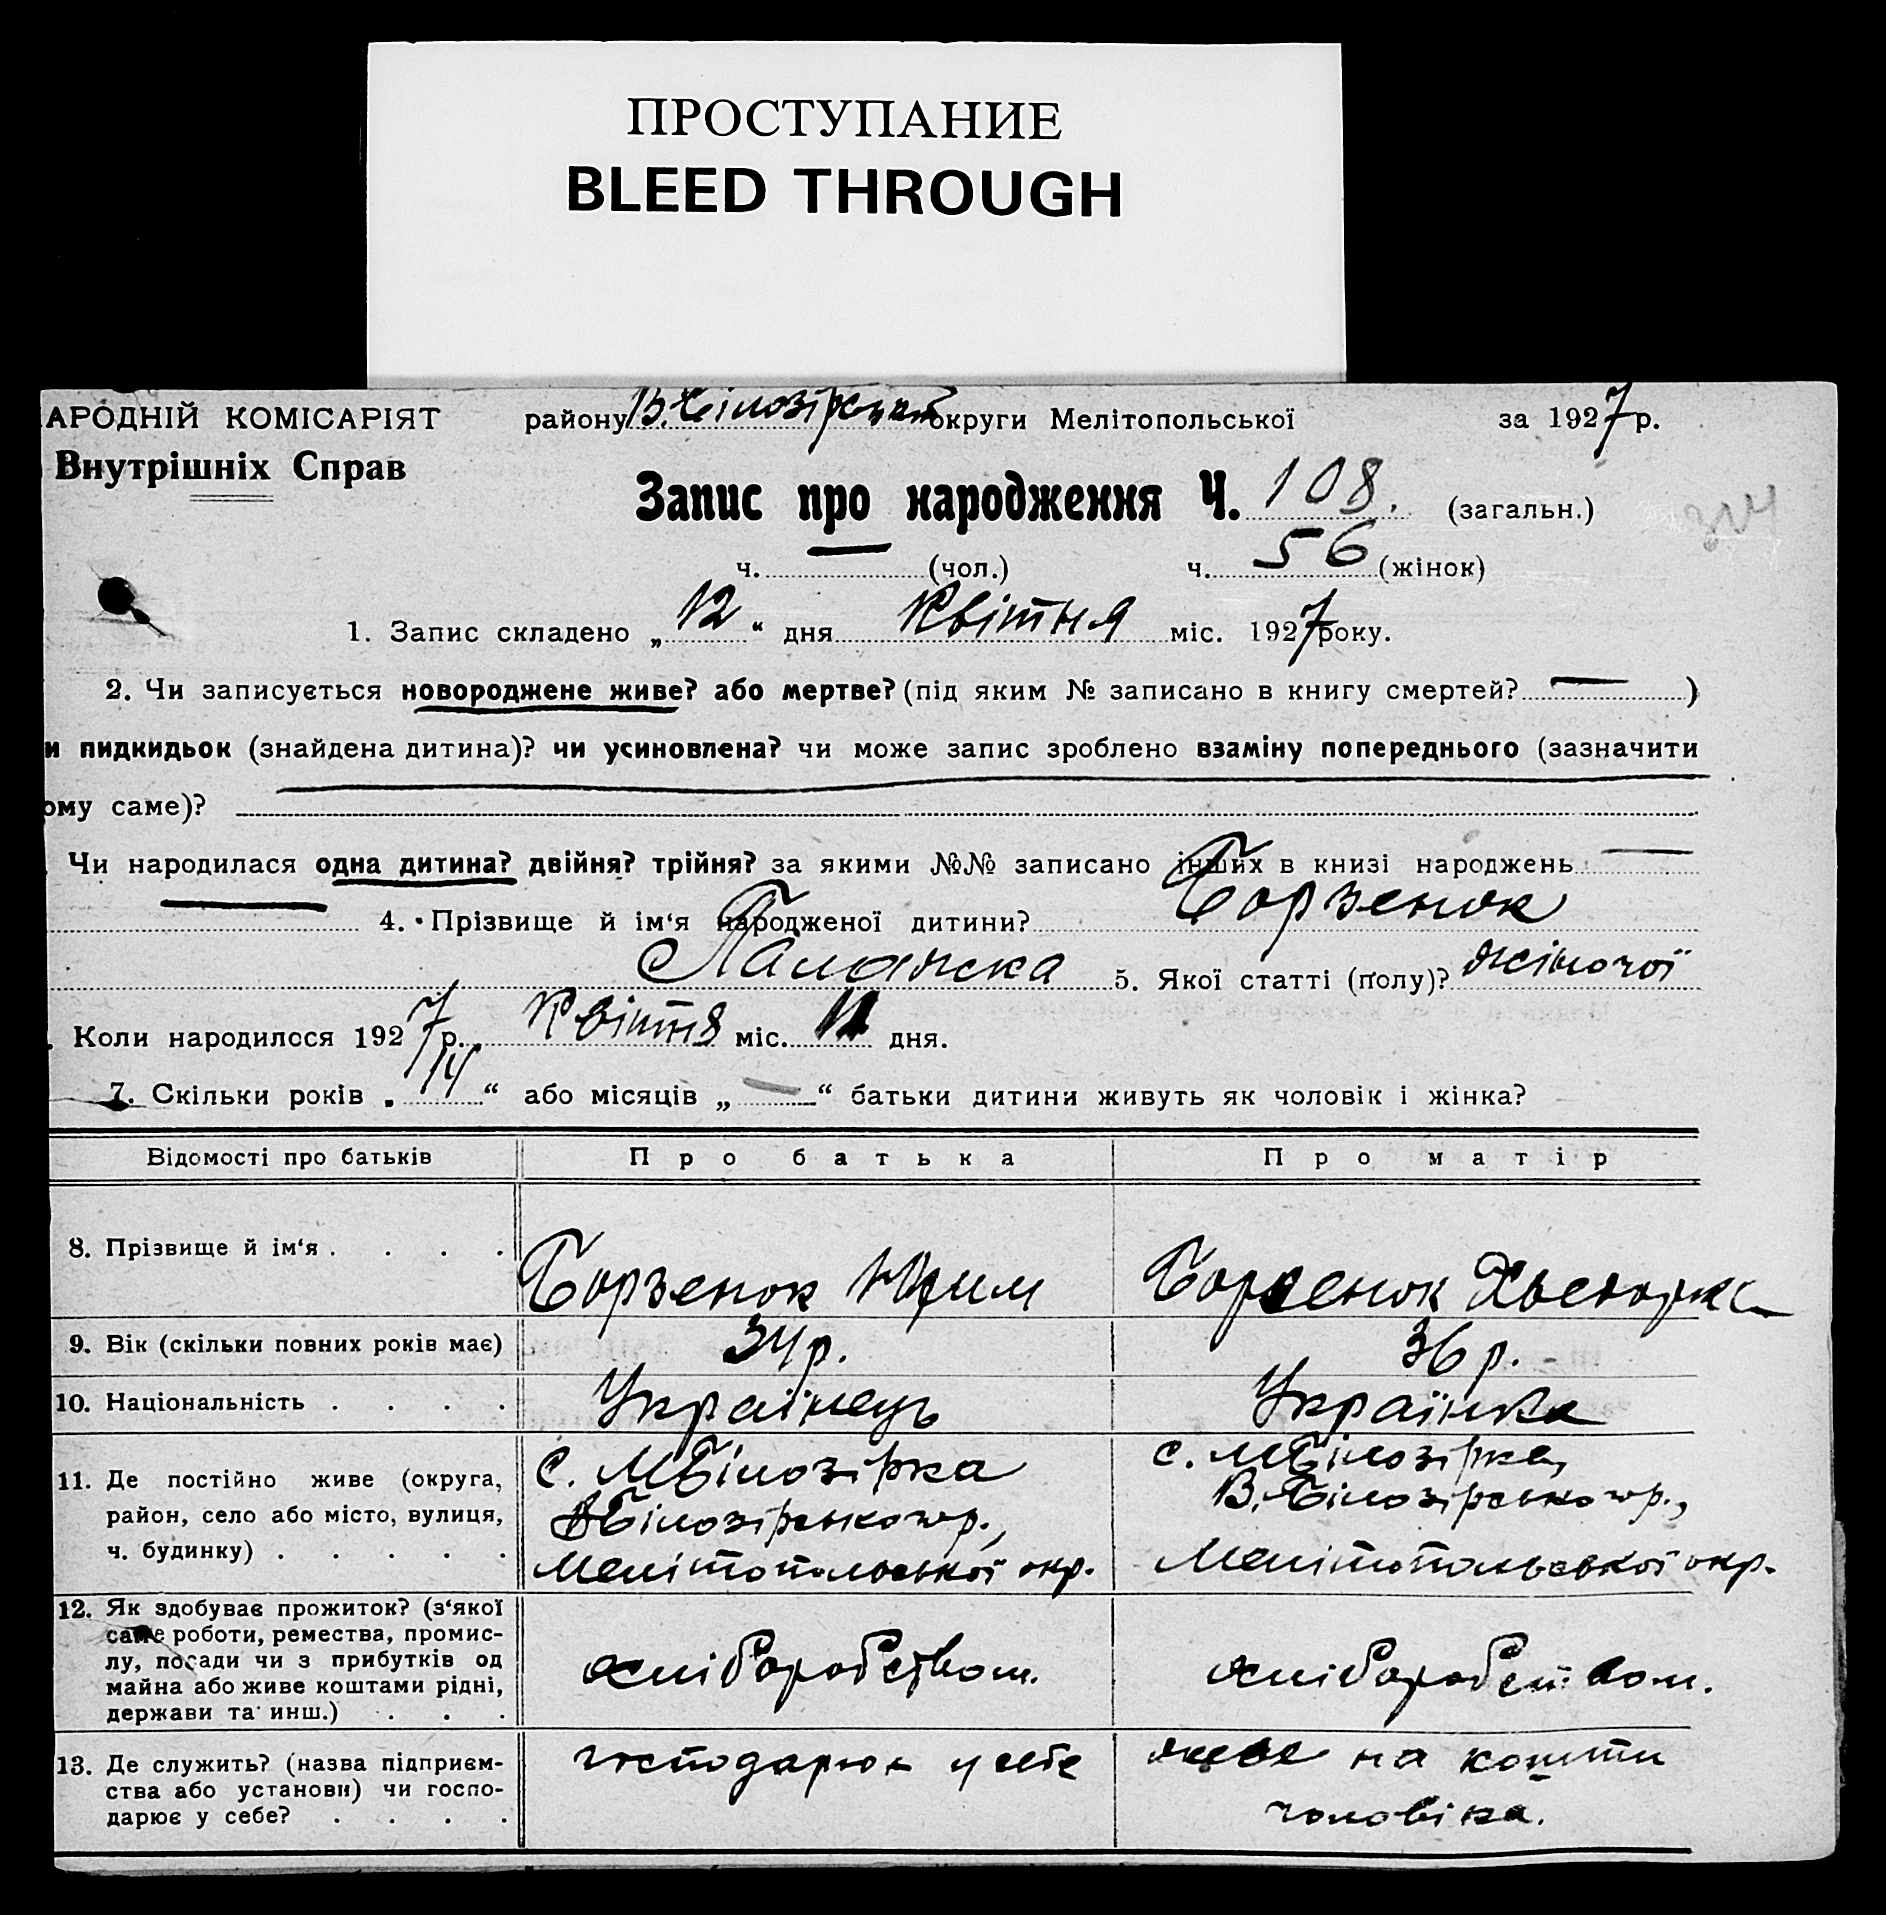 ПРОСТУПАНИЕ
BLEED THROUGH
АРОДНІЙ КОМІСАРІЯТ району В. Білозірськ округи Мелітопольської за 1927 р.
Внутрішніх Справ
Запис про народження Ч. 108. (загальн.)
314
ч. — (чол.) ч. 56 (жінок)
1. Запис складено „12“ дня Квітня міс. 1927 року.
2. Чи записується новороджене живе? або мертве? (під яким № записано в книгу смертей? — )
и пидкидьок (знайдена дитина)? чи усиновлена? чи може запис зроблено взаміну попереднього (зазначити
ому саме)?
Чи народилася одна дитина? двійня? трійня? за якими №№ записано інших в книзі народжень —
4. Прізвище й ім‘я народженої дитини? Борзенок
Палажка 5. Якої статті (полу)? жіночої
. Коли народилося 1927 р. Квітня міс. 11 дня.
7. Скільки років „14“ або місяців „—“ батьки дитини живуть як чоловік і жінка?
Відомості про батьків Про батька Про матір
8. Прізвище й ім‘я . . . . Борзенок Юхим Борзенок
9. Вік (скільки повних років має) 34 р. 36 р.
10. Національність . . . . Українець Українка
11. Де постійно живе (округа, район, село або місто, вулиця, ч. будинку) . . . . .
с. М Білозірка
В Білозірського р.,
Мелітопольської окр.
с. М Білозірка,
В. Білозірського р.,
Мелітопольської окр.
12. Як здобуває прожиток? (з‘якої
саме роботи, ремества, промис-
лу, посади чи з прибутків од
майна або живе коштами рідні,
держави та инш.) . . .
хліборобством.
хліборобством.
13. Де служить? (назва підприєм-
ства або установи) чи госпо-
дарює у себе? . . . .
господарює у себе
живе на кошти
чоловіка.